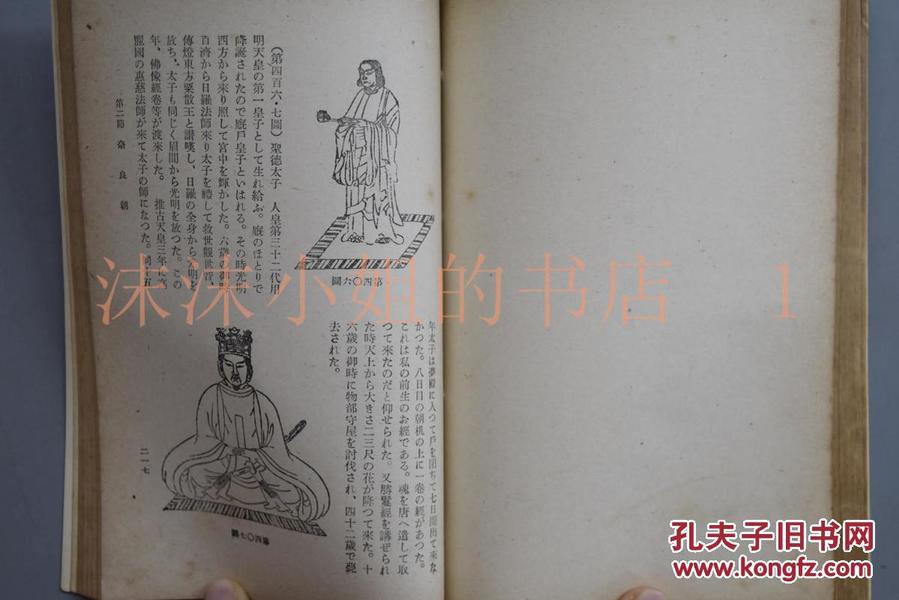 (第四百六・七圖) 聖德太子　人皇第三十二代用
明天皇の第一皇子として生れ給ふ。廐のほとりで
降誕されたので廐戶皇子といはれる。その時光明
西方から來り照して宮中を輝かした。六歲の御時
百濟から日羅法師來り太子を禮して救世觀世音、
傳燈東方粟散王と讃嘆し、日羅の全身から光明を
放ち、太子も同じく眉間から光明を放つた。この
年、佛像經卷等が渡來した。　推古天皇三年に高
麗國の惠慈法師が來て太子の師になつた。同十五
第四〇六圖
年太子は夢殿に入つて戶を閉ぢて七日間出て來な
かつた。八日目の朝机の上に一卷の經があつた。
これは私の前生のお經である。魂を唐へ遣して取
つて來たのだと仰せられた。又勝鬘經を講ぜられ
た時天上から大きさ二三尺の花が降つて來た。十
六歲の御時に物部守屋を討伐され、四十二歲で薨
去された。
第四〇七圖
第二節　奈良朝
二一七
沫沫小姐的书店　1
孔夫子旧书网
www.kongfz.com